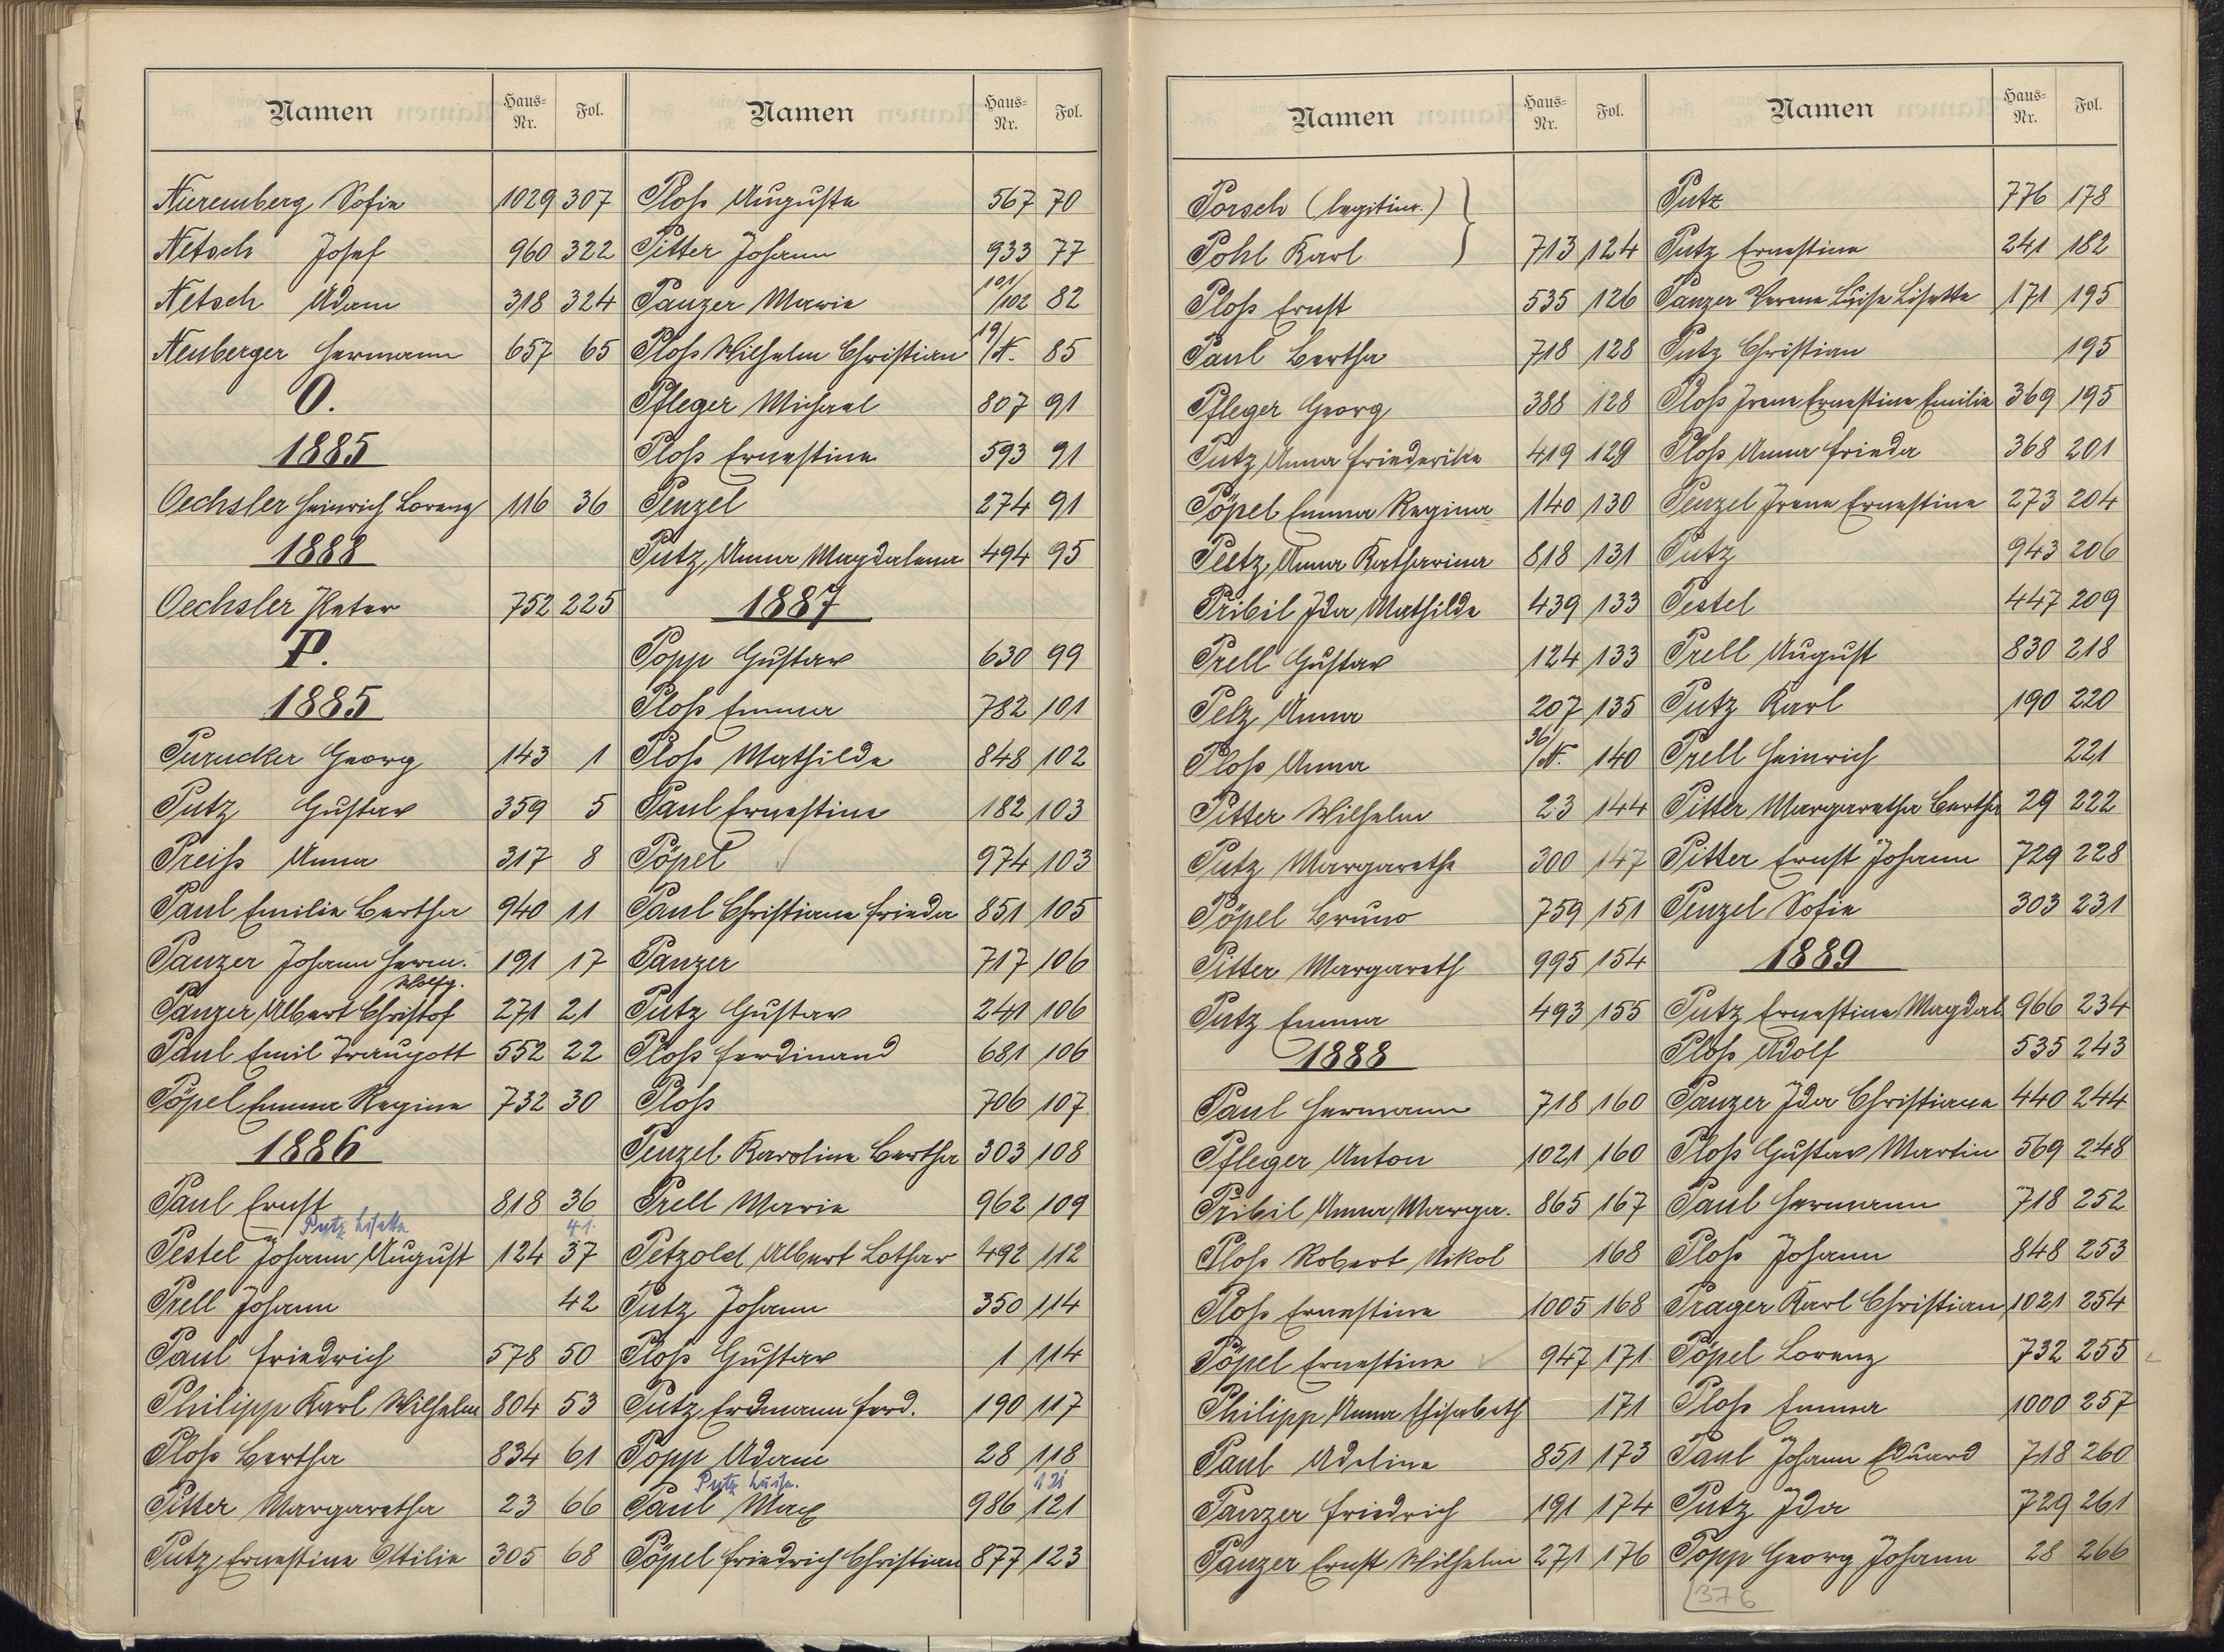 Namen Haus-Nr. Fol.
Nüremberg Sofie 1029 307
Netsch Josef 960 322
Netsch Adam 318 324
Neuberger Hermann 657 65
O.
1885
Oechsler Heinrich Lorenz 116 36
1888
Oechsler Peter 752 225
P.
1885
Purucker Georg 143 1
Putz Gustav 359 5
Preiß Anna 317 8
Paul Emilie Bertha 940 11
Panzer Johann Herm. 191 17
Wolfg.
Panzer, Albert Christof 271 21
Paul Emil Traugott 552 22
Pöpel Emma Regine 732 30
1886
Paul Ernst 818 36
Putz Lisette 41.
Pestel Johann August 124 37
Prell Johann 42
Paul Friedrich 578 50
Philipp Karl Wilhelm 804 53
Ploß Bertha 834 61
Pitter Margaretha 23 66
Putz, Ernestine Ottilie 305 68
Namen Haus-Nr. Fol.
Ploß Auguste 567 70
Pitter Johann 933 77
Panzer Marie 101/102 82
Ploß Wilhelm Christian 19/N. 85
Pfleger Michael 807 91
Ploß Ernestine 593 91
Penzel 274 91
Putz, Anna Magdalena 494 95
1887
Popp Gustav 630 99
Ploß Emma 782 101
Ploß Mathilde 848 102
Paul Ernestine 182 103
Pöpel 974 103
Paul Christiane Frieda 851 105
Panzer 717 106
Putz Gustav 241 106
Ploß Ferdinand 681 106
Ploß 706 107
Penzel Karoline Bertha 303 108
Prell Marie 962 109
Petzold Albert Lothar 492 112
Putz Johann 350 114
Ploß Gustav 1 114
Putz, Erdmann Ferd. 190 117
Popp Adam 28 118
Putz Luise. 121
Paul Max 986 121
Pöpel Friedrich Christian 877 123
Namen Haus-Nr. Fol.
Porsch (legitim.) }
Pohl Karl 713 124
Ploß Ernst 535 126
Paul Bertha 718 128
Pfleger Georg 388 128
Putz, Anna Friederike 419 129
Pöpel Emma Regina 140 130
Peetz, Anna Katharina 818 131
Pribil Ida Mathilde 439 133
Prell Gustav 124 133
Pelz Anna 207 135
Ploß Anna 36/N. 140
Pitter Wilhelm 23 144
Putz Margarethe 300 147
Pöpel Bruno 759 151
Pitter Margareth 995 154
Putz Emma 493 155
1888
Paul Hermann 718 160
Pfleger Anton 1021 160
Pribil Anna, Marga. 865 167
Ploß Robert Nikol 168
Ploß Ernestine 1005 168
Pöpel Ernestine 947 171
Philipp Anna Elisabeth 171
Paul Adeline 851 173
Panzer Friedrich 191 174
Panzer Ernst Wilhelm 271 176
Namen Haus-Nr. Fol.
Putz 776 178
Putz Ernestine 241 182
Panzer Verene Luise Lisette 171 195
Putz Christian 195
Ploß Irene Ernestine Emilie 369 195
Ploß Anna Frieda 368 201
Penzel Irene Ernestine 273 204
Putz 943 206
Pestel 447 209
Prell August 830 218
Putz Karl 190 220
Prell Heinrich 221
Pitter Margaretha Bertha 29 222
Pitter Ernst Johann 729 228
Penzel Sofie 303 231
1889
Putz Ernestine Magdal 966 234
Ploß Adolf 535 243
Panzer Ida Christiane 440 244
Ploß Gustav Martin 569 248
Paul Hermann 718 252
Ploß Johann 848 253
Prager Karl Christian 1021 254
Pöpel Lorenz 732 255
Ploß Emma 1000 257
Paul Johann Eduard 718 260
Putz Ida 729 261
Popp Georg Johann 28 266
376